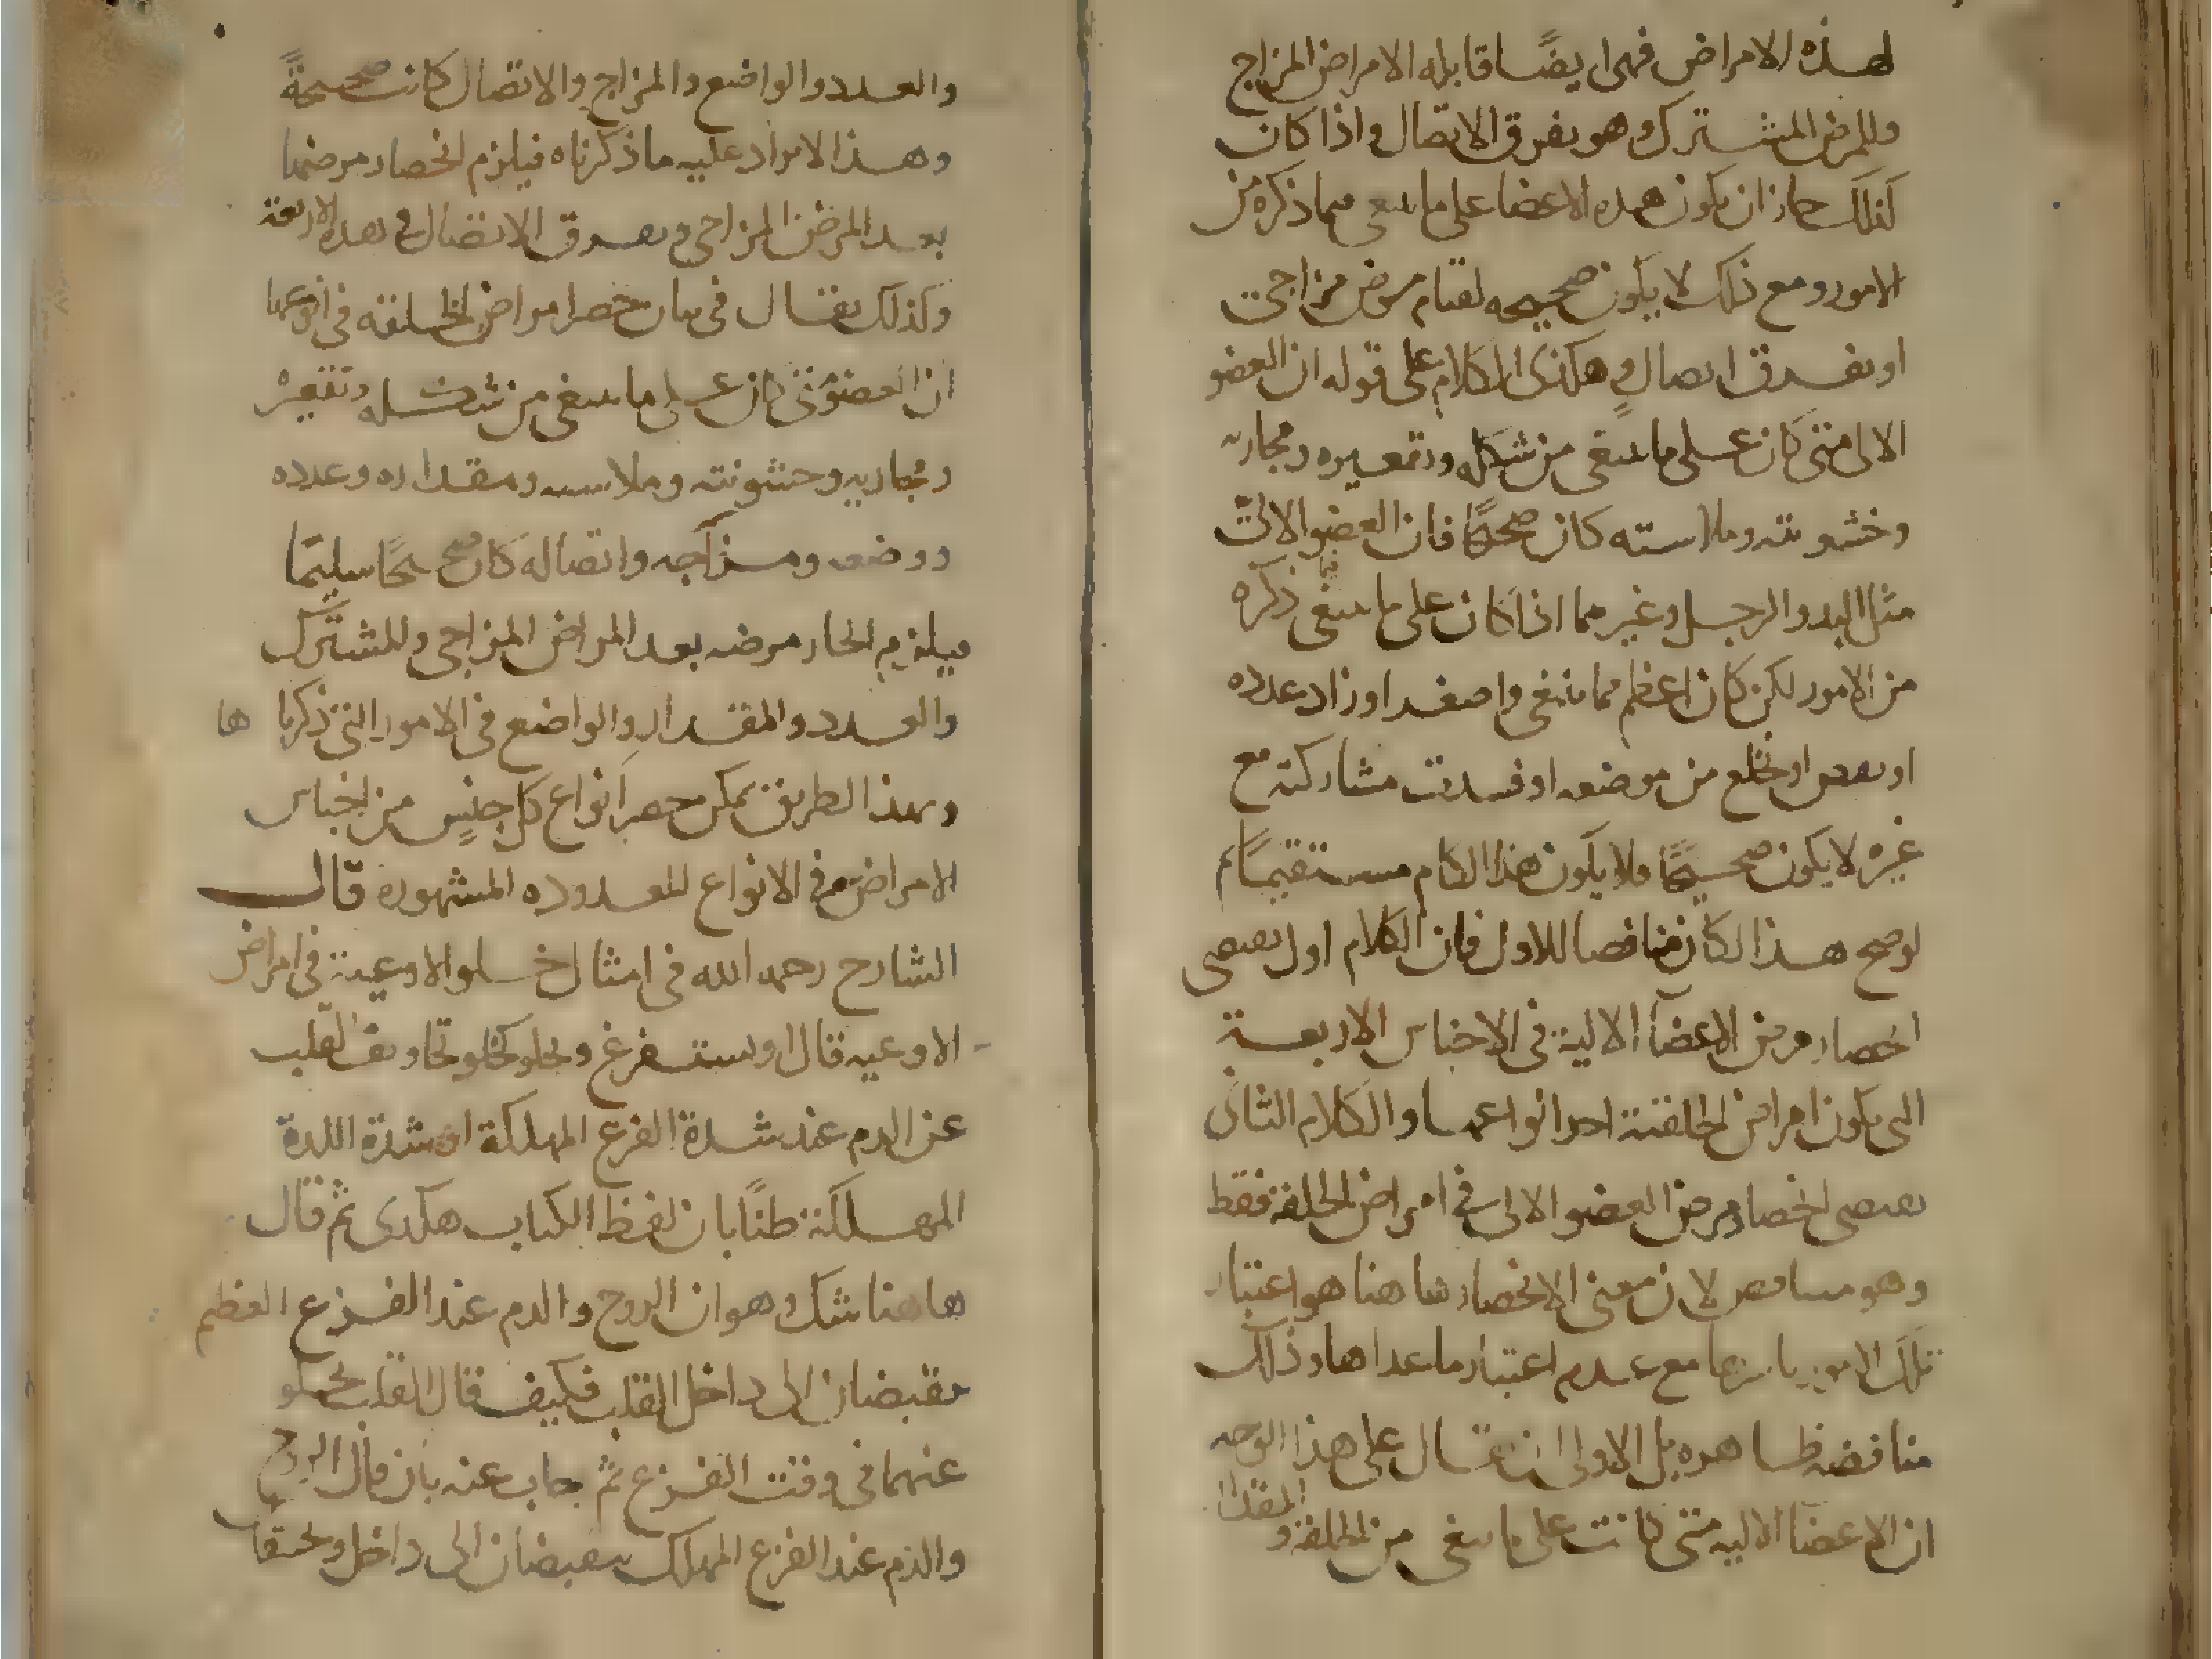 لهذه الامراض فهى ايضًا قابله الامراض المزاج
وللمرض المشترك وهو تفرق الاتصال واذا كان
كذلك جاز ان يكون هذه الاعضا على ما ينبغى مما ذكره من
الامور ومع ذلك لا يكون صحيحه لقيام مرض مزاجى
او تفرق اتصال وهكذى الكلام على قوله ان العضو
الالى متى كان على ما ينبغى من شكله وتقعيره ومجاريه
وخشونته وملاسته كان صحيحًا فان العضو الالىّ
مثل اليد والرجل وغيرهما اذا كان على ما ينبغى فيما ذكره
من الامور لكن كان اعظم مما ينبغى واصغر او زاد عدده
او نقص او تخلع من موضعه او فسدت مشاركته مع
غيره لا يكون صحيحًا فلا يكون هذا الكلام مستقيمًا ثم
لو صح هذا لكان مناقضا للاول فان الكلام اول يقتضى
انحصار مرض الاعضآ الالية فى الاجناس الاربعة
التى يكون امراض الخلقة احد انواعها والكلام الثانى
يقتضى انحصار مرض العضو الالى فى امراض الخلقة فقط
وهو مناقض لان معنى الانحصار هاهنا هو اعتبار
تلك الامور باسرها مع عدم اعتبار ما عداها وذلك
مناقضه ظاهره بل الاولى ان يقال على هذا الوجه
ان الاعضآ الاليه متى كانت على ما ينبغى من الخلقة و المقدار
والعدد والواضع والمزاج والاتصال كانت صحيحةً
وهذا الامراد عليه ما ذكرناه فيلزم انحصار مرضها
بعد المرض المزاجى وتفرق الاتصال فى هذه الاربعة
وكذلك يقال فى بيان حصر امراض الخلقه فى انواعها
ان العضو متى كان على ما ينبغى من شكله وتقعيره
ومجاريه وخشونته وملاسته ومقداره وعدده
ووضعه ومزاجه واتصاله كان صحيحًا سليمًا
فيلزم انحصار مرضه بعد المراض المزاجى وللمشترك
والعدد والمقدار والواضع فى الامور التى ذكرنا ها
وبهذا الطريق يمكن حصر انواع كل جنسٍ من اجناس
الامراض فى الانواع المعدوده المشهوره قال
الشارح رحمه الله فى امثال خلو الاوعية فى امراض
الاوعيه قال او يستفرغ ويخلو كخلو تجاويف القلب
عن الدم عند شدة الفزع المهلكة او شدة اللدة
المهلكة ظنًا بان لفظ الكتاب هكذى ثم قال
هاهنا شك وهو ان الروح والدم عند الفزع العظيم
ينقبضان الى داخل القلب فكيف قال القلب يخلو
عنهما فى وقت الفزع ثم جاب عنه بان قال الروح
والدم عند الفزع المهلك ينقبضان الى داخل ويختنقان